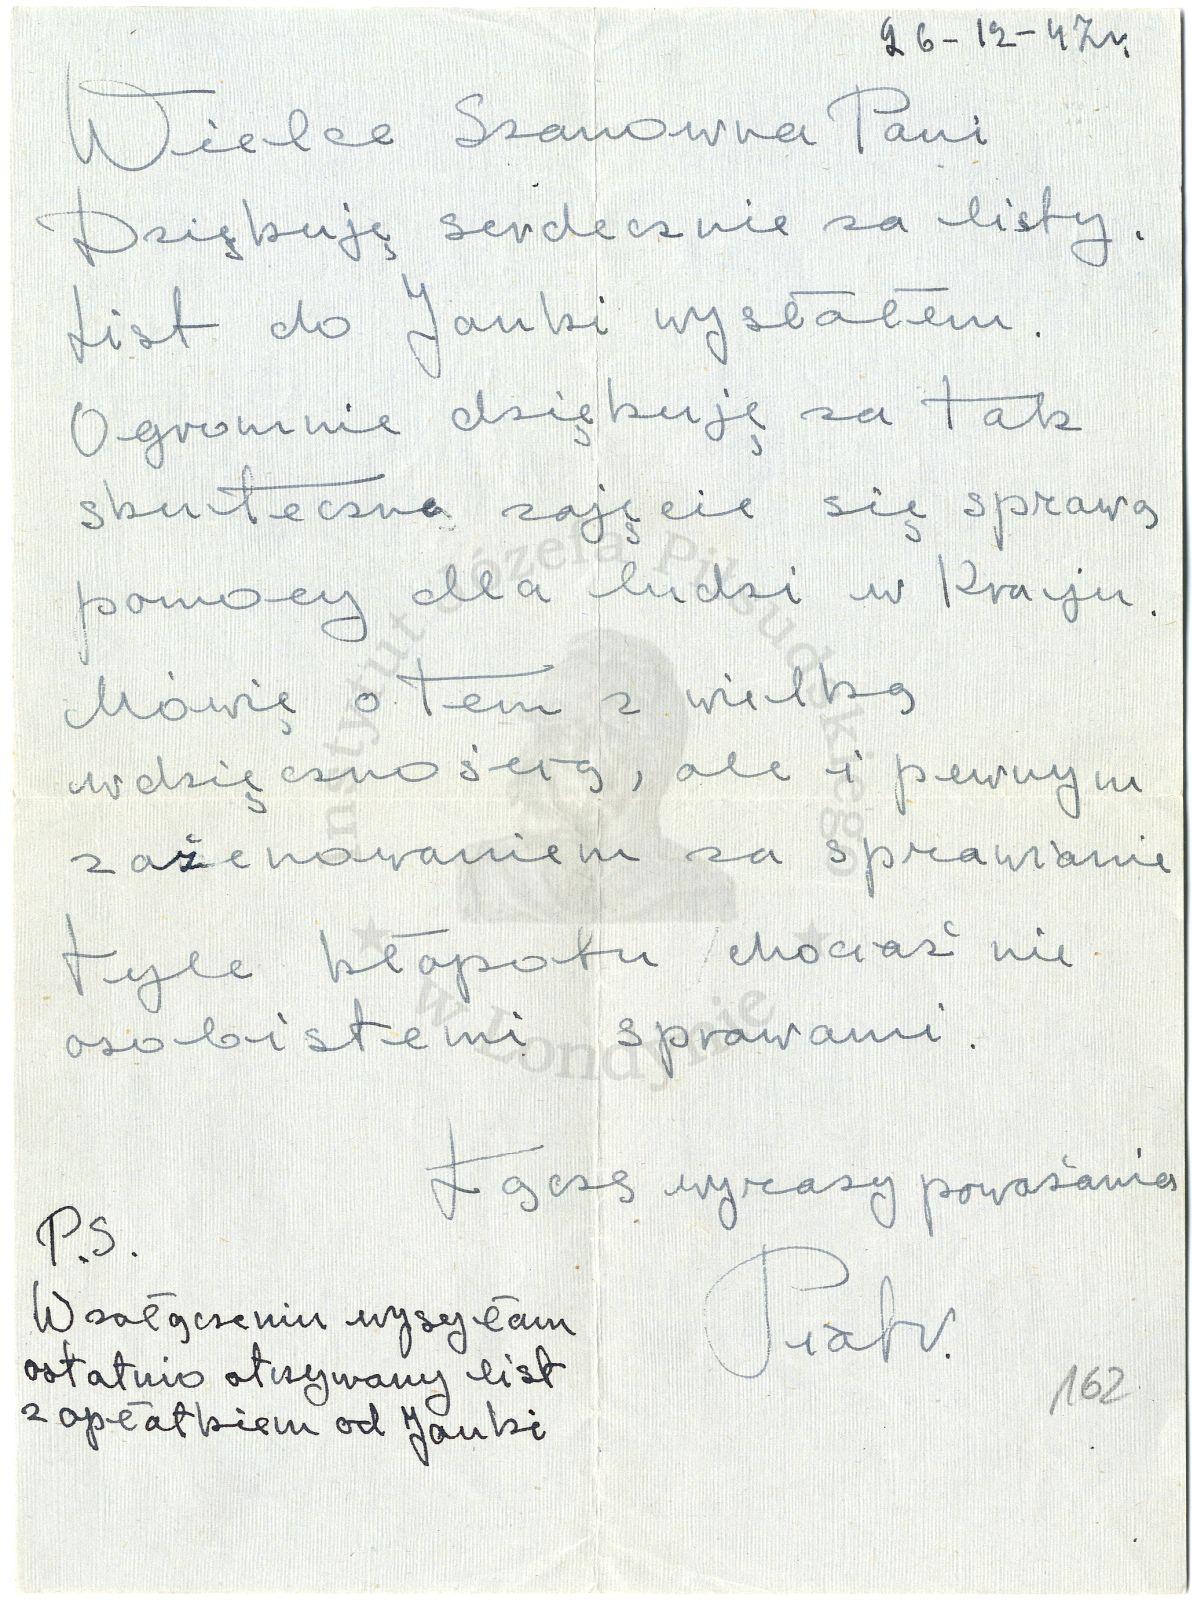 26-12-47r.
Wielce Szanowna Pani
Dziękuję serdecznie za listy.
List do Janki wysłałem.
Ogromnie dziękuję za tak
skuteczne zajęcie się sprawą
pomocy dla ludzi w Kraju.
Mówię o tem z wielką
wdzięcznością, ale i pewnym
zażenowaniem za sprawianie
tyle kłopotu chociaż nie
osobistemi sprawami.
Łączę wyrazy poważania
Piotr.
P.S.
W załączeniu wysyłam
ostatnio otrzymany list
z opłatkiem od Janki
162
Instytut Józefa Piłsudskiego
w Londynie